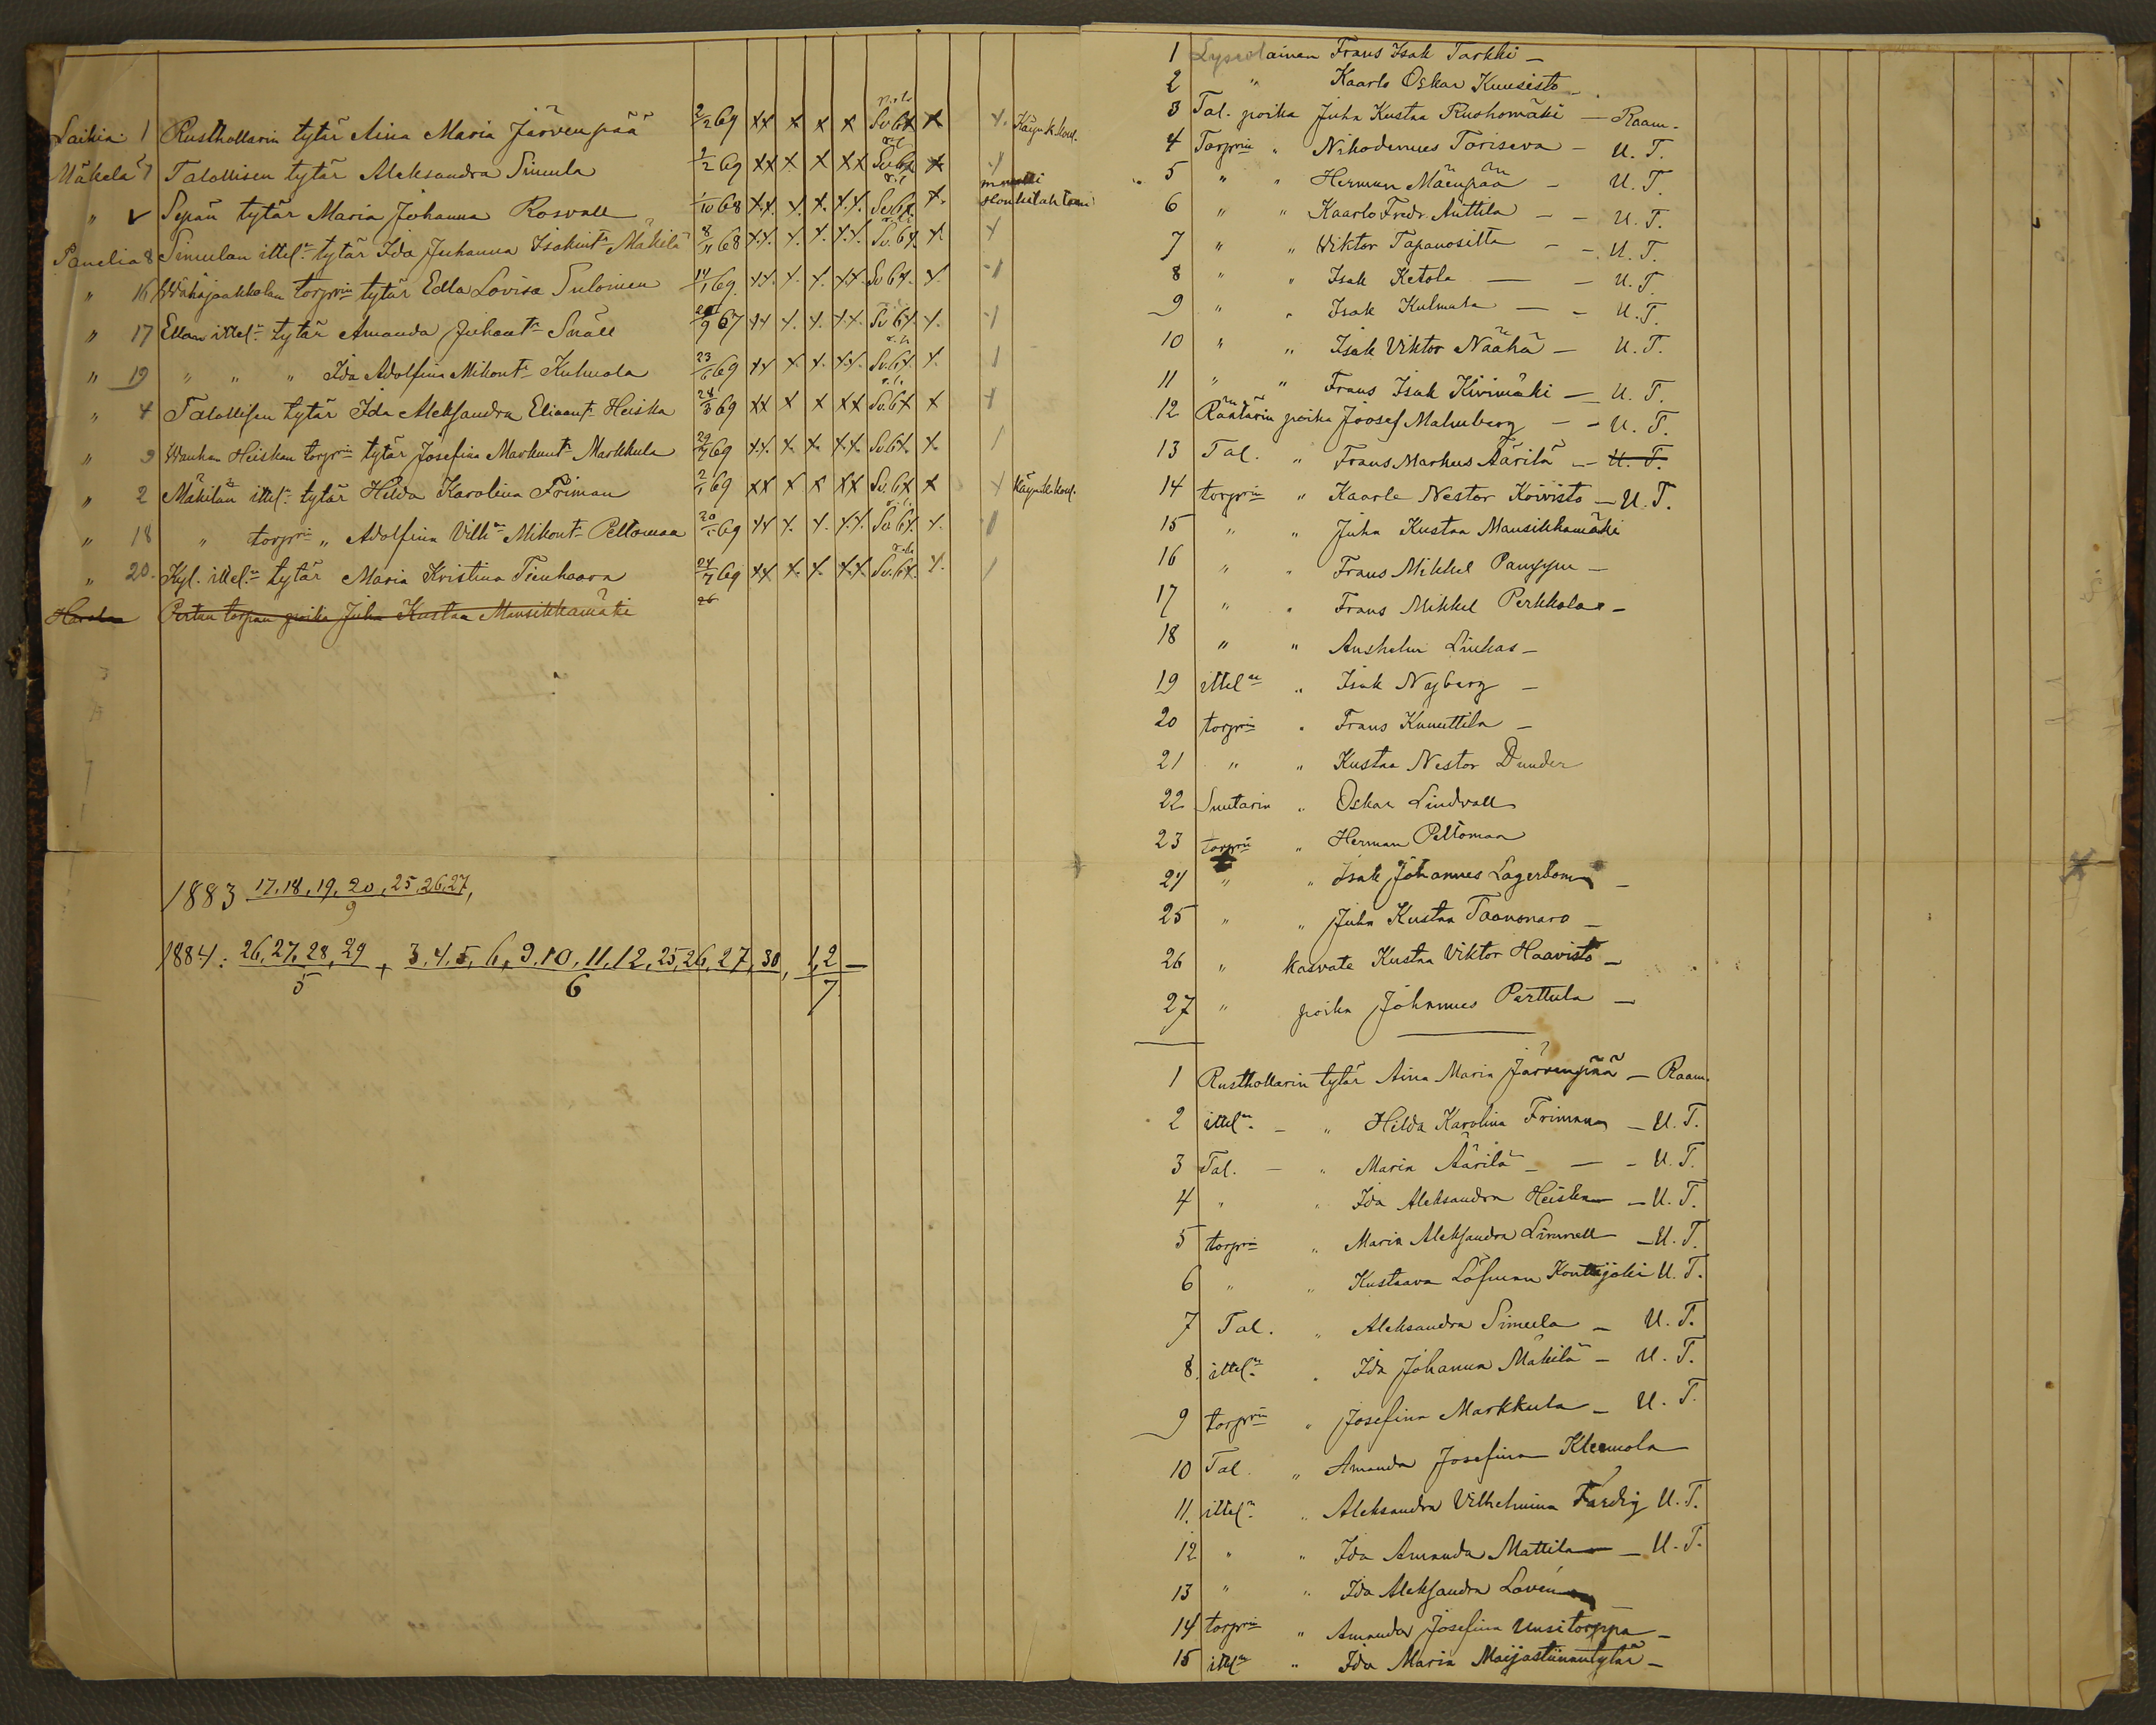 Laihia 1 Rusthollarin tytär Aina Maria Järvenpää 2/2 69 xx x x x Sv. 6x x x. Käyn. k. koul.
Mäkelä 7 Talollisen tytär Aleksandra Simula 2/2 69 xx x. x xx Sv. 6x x
" Sepän tytär Maria Johanna Rosvall 1/10 68 x.x. x. x. x.x. Sv. 6x. x.
Panelia 8 Simulan ittel:n tytär Ida Juhanna Isakint: Mäkilä 8/11 68 x.x. x. x. x.x. Sv. 6x. x. x
" 16 Wähäjaakkolan torprin tytär Edla Lovisa Salonen 14/1 69. xx. x. x. x.x. Sv 6x. x.
" 17 Ellan ittel:n tytär Amanda Juhant: Snäll 9 67 xx x. x. x.x. Sv 6x. x.
" 19 " " " Ida Adolfina Mikont: Kulmala 23/6 69 xx x x. x.x. Sv. 6x. x.
" 4 Talollisen tytär Ida Aleksandra Eliaant: Heiska 28/3 69 xx x x xx Sv. 6x x x
" 9 Wanhan Heiskan torprin tytär Josefina Markunt: Markkula 69 x.x. x. x. x.x. Sv. 6x. x.
" 2 Mäkilän ittel:n tytär Hilda Karolina Friman 2/1 69 xx x x xx Sv. 6x x x Käyn. k. koul.
" 18 " torprin " Adolfina Vilh:a Mikont: Peltomaa 69 xx x. x. x.x. Sv. 6x. x.
" 20. Kyl. ittel:n tytär Maria Kristina Tienhaara 24/7 69 xx x. x. x.x. Sv. 6x. x.
Pertun torpan poika Juha Kustaa Mansikkamäki 26
1883 17, 18, 19, 20, 25, 26, 27,
9
1884: 26, 27, 28, 29 + 3, 4, 5, 6, 9, 10, 11, 12, 25, 26, 27, 30, 1, 2 –
5 6 7
1 Lyseolainen Frans Isak Tarkki –
2 " Kaarlo Oskar Kuusisto –
3 Tal. poika Juha Kustaa Ruohomäki – Raam.
4 Torprin " Nikodemus Toriseva – U. T.
5 " " Herman Mäenpää – U. T.
6 " " Kaarlo Fredr. Anttila – – U. T.
7 " " Wiktor Tapanositta – – U. T.
8 " " Isak Ketola – – U. T.
9 " " Isak Kulmala – – U. T.
10 " " Isak Viktor Näähä – U. T.
11 " " Frans Isak Kivimäki – U. T.
12 Räätärin poika Joosef Malmberg – – U. T.
13 Tal. " Frans Markus Äärilä – U. T.
14 torprin " Kaarle Nestor Koivisto – U. T.
15 " " Juha Kustaa Mansikkamäki
16 " " Frans Mikkel –
17 " " Frans Mikkel Perkkola –
18 " " Anshelm Liukas –
19 ittel:n " Isak Nyberg –
20 torprin " Frans Kunuttila –
21 " " Kustaa Nestor Dunder
22 Suutarin " Oskar Lindvall
23 torprin " Herman Peltomaa
24 " " Isak Johannes Lagerbom –
25 " " Juha Kustaa Taanonaro –
26 " kasvate Kustaa Viktor Haavisto –
27 " poika Johannes Perttula –
1 Rusthollarin tytär Aina Maria Järvenpää – Raam.
2 ittel:n – " Hilda Karolina Friman – U. T.
3 Tal. – " Maria Äärilä – – – U. T.
4 " " Ida Aleksandra Heiska – U. T.
5 torprin " Maria Aleksandra Linnell – U. T.
6 " " Kustaava Löfman Konttijoki U. T.
7 Tal. " Aleksandra Simula – U. T.
8. ittel:n " Ida Johanna Mäkilä – U. T.
9 torprin " Josefina Markkula – U. T.
10 Tal. " Amanda Josefina Kleemola
11. ittel:n " Aleksandra Vilhelmina Färdig U. T.
12 " " Ida Amanda Mattila – U. T.
13 " " Ida Aleksandra Lovén
14 torprin " Amanda Josefina Uusitorppa –
15 ittel:n " Ida Maria Maijastiinantytär –